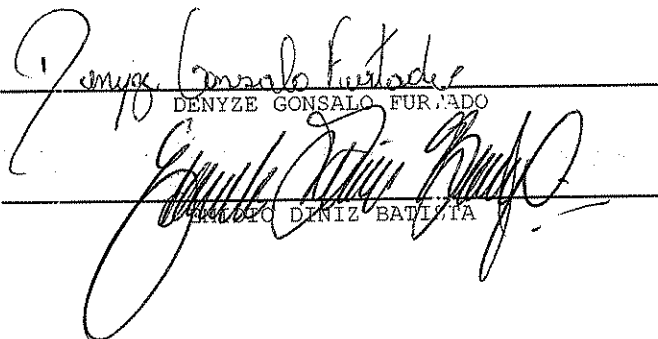 Denyze Gonsalo Furtado
DENYZE GONSALO FURTADO
DINIZ BATISTA